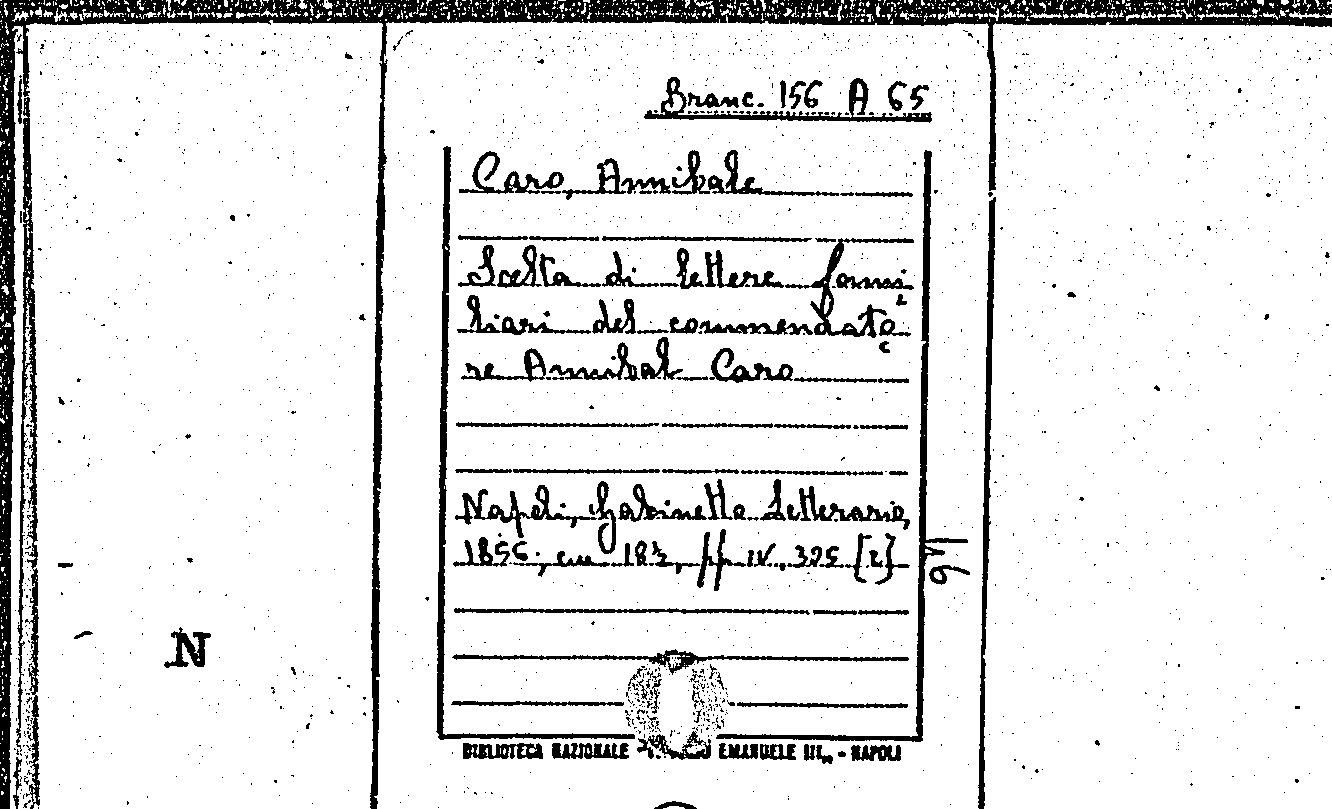 Branc. 156 A 65
Caro, Annibale
Scelta di lettere fami
liari del commendato
re Annibal Caro
Napoli, Gabinetto Letterario,
cm 18½, pp. IV, [2]
N
BIBLIOTECA NAZIONALE EMANUELE III,, - NAPOLI